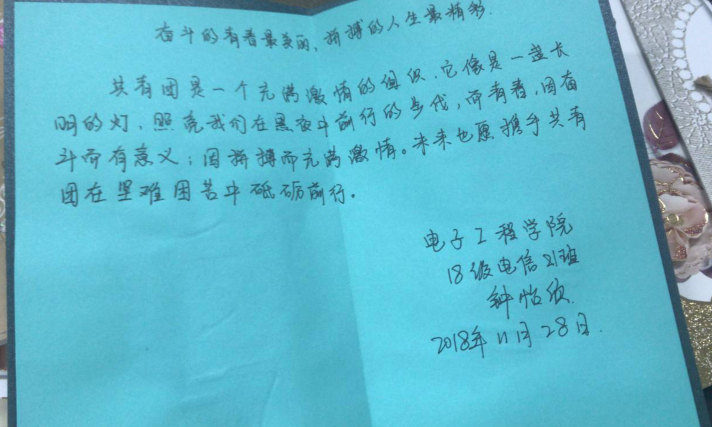 奋斗的青春最美丽，拼搏的人生最精彩.
共青团是一个充满激情的组织，它像是一盏长
明的灯，照亮我们在黑夜中前行的步伐，而青春，因奋
斗而有意义；因拼搏而充满激情。未来也愿携手共青
团在艰难困苦中砥砺前行。
电子工程学院
18级电信21班
钟怡欣
2018年11月28日.